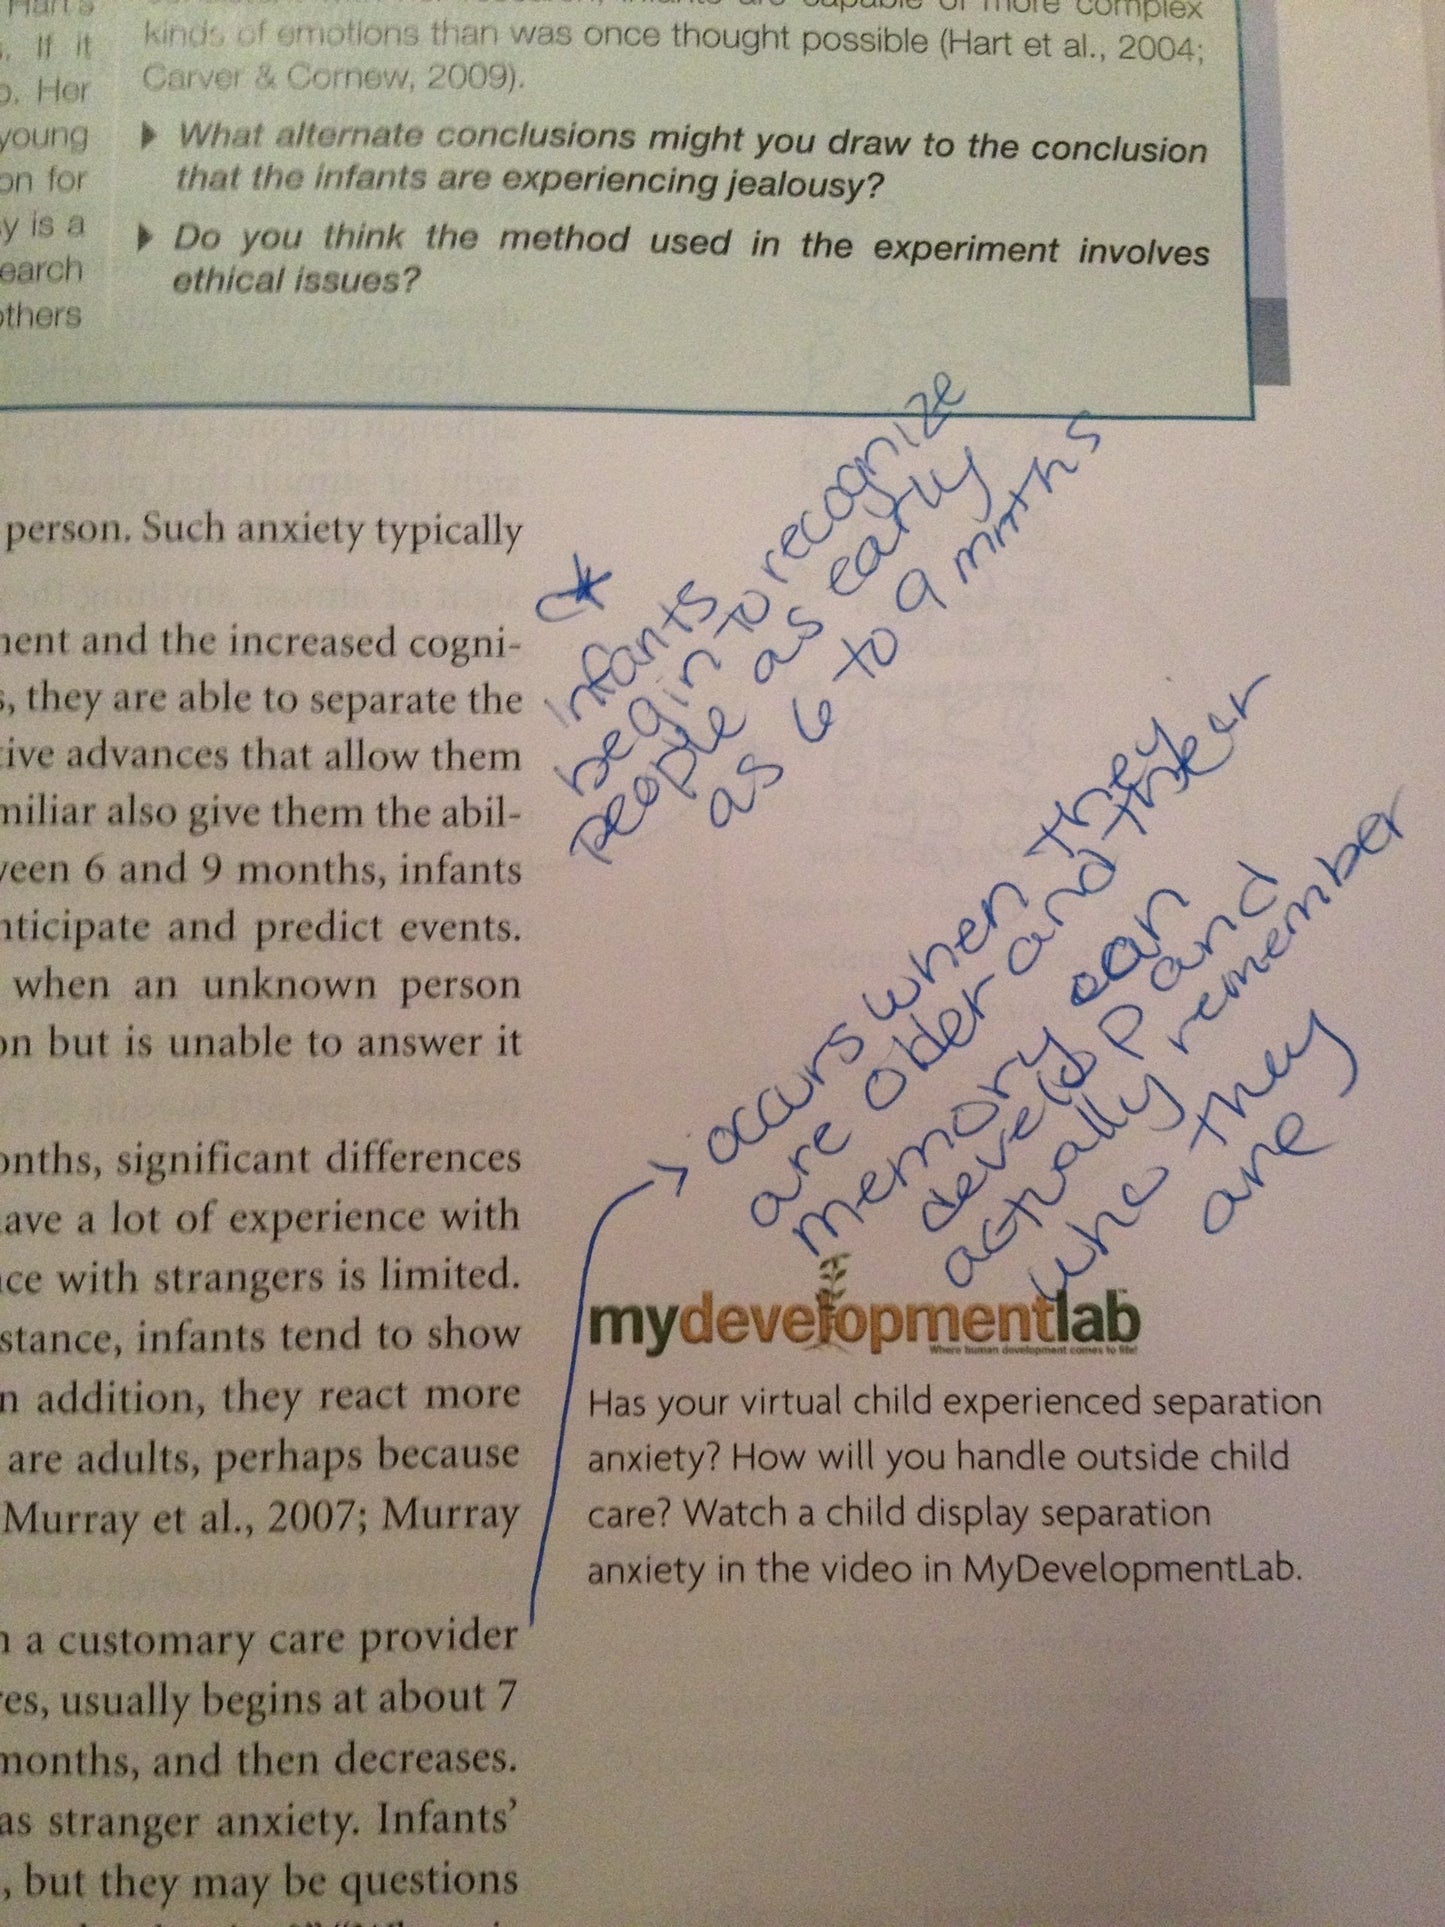 Hart's
. If it
o. Her
young
on for
y is a
earch
others
infants are capable of more complex
kinds of emotions than was once thought possible (Hart et al., 2004;
Carver & Cornew, 2009).
What alternate conclusions might you draw to the conclusion
that the infants are experiencing jealousy?
Do you think the method used in the experiment involves
ethical issues?
person. Such anxiety typically
ment and the increased cogni-
s, they are able to separate the
tive advances that allow them
miliar also give them the abil-
ween 6 and 9 months, infants
nticipate and predict events.
when an unknown person
on but is unable to answer it
onths, significant differences
have a lot of experience with
nce with strangers is limited.
stance, infants tend to show
n addition, they react more
are adults, perhaps because
Murray et al., 2007; Murray
n a customary care provider
res, usually begins at about 7
months, and then decreases.
as stranger anxiety. Infants'
, but they may be questions
Infants
begin to recognize
people as early
as 6 to 9 mnths
occurs when they
are older and their
memory can
develop and
actually remember
who they
are
mydevelopmentlab
Where human development comes to life!
Has your virtual child experienced separation
anxiety? How will you handle outside child
care? Watch a child display separation
anxiety in the video in MyDevelopmentLab.